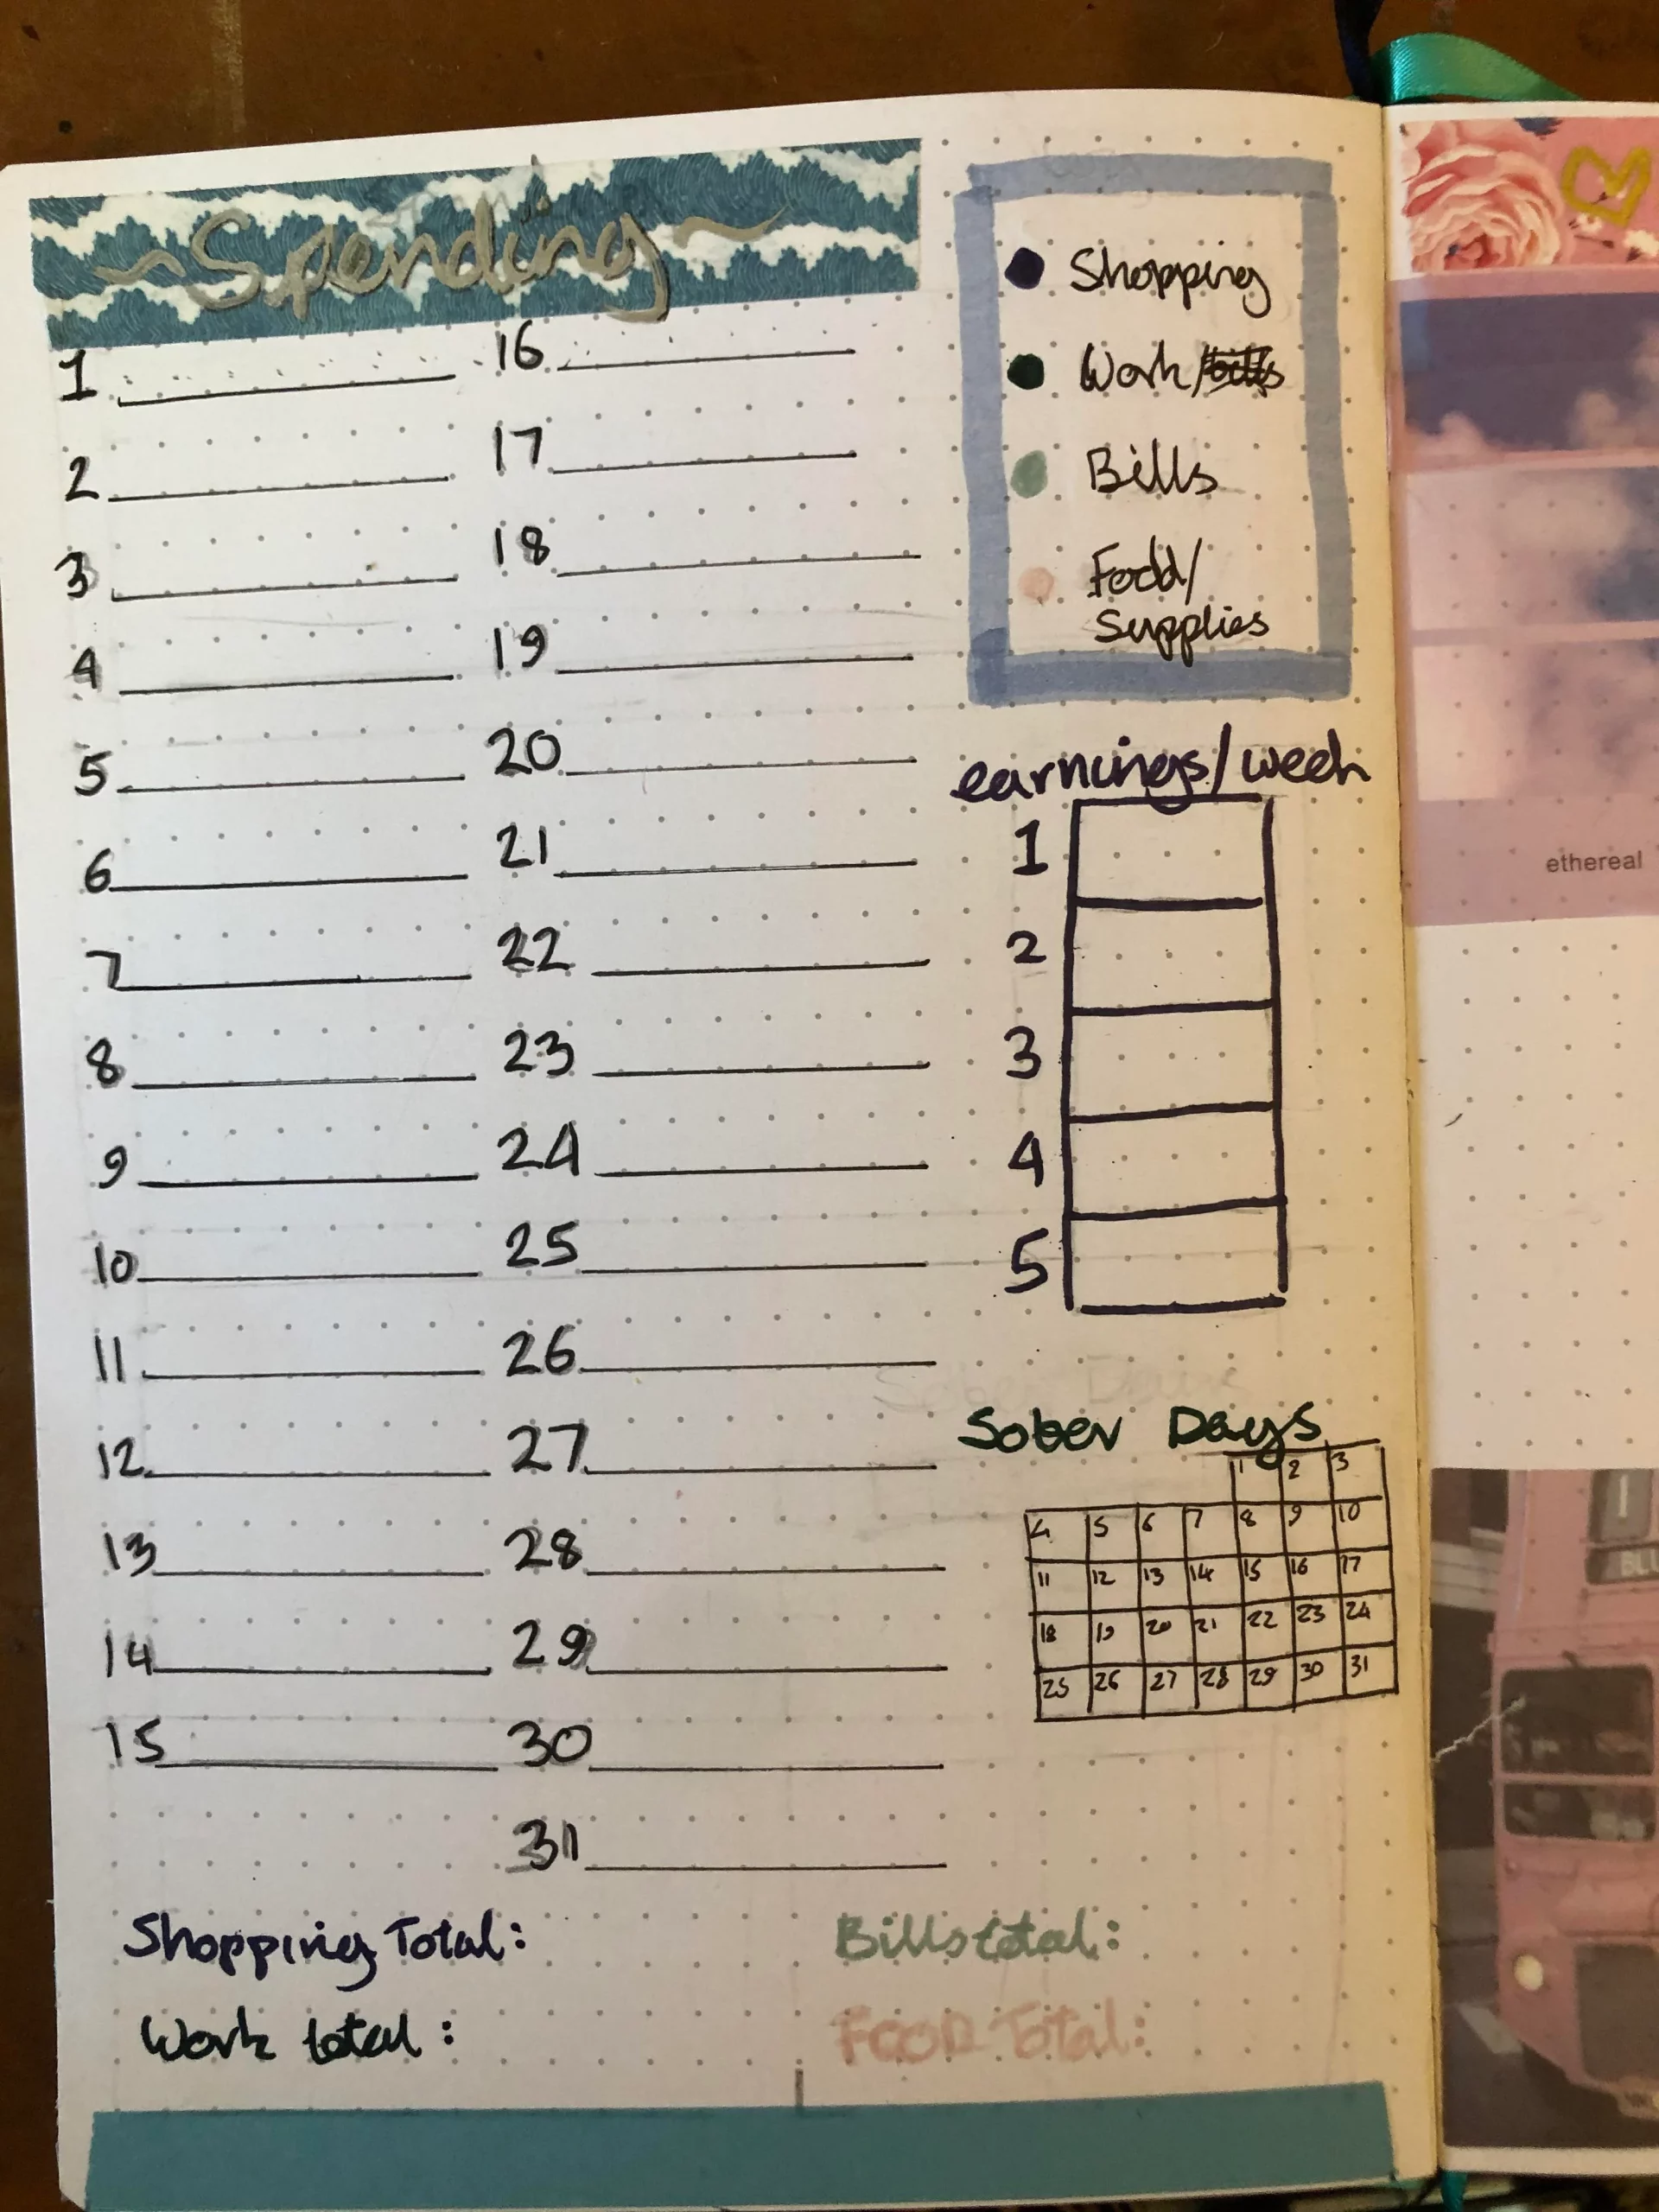 ~Spending~
1
2
3
4
5
6
7
8
9
10
11
12
13
14
15
16
17
18
19
20
21
22
23
24
25
26
27
28
29
30
31
Shopping
Work/
Bills
Food/
Supplies
earnings/week
1
2
3
4
5
Sober Days
1 2 3
4 5 6 7 8 9 10
11 12 13 14 15 16 17
18 19 20 21 22 23 24
25 26 27 28 29 30 31
Shopping Total:
Work total:
Bills total:
FOOD Total:
ethereal